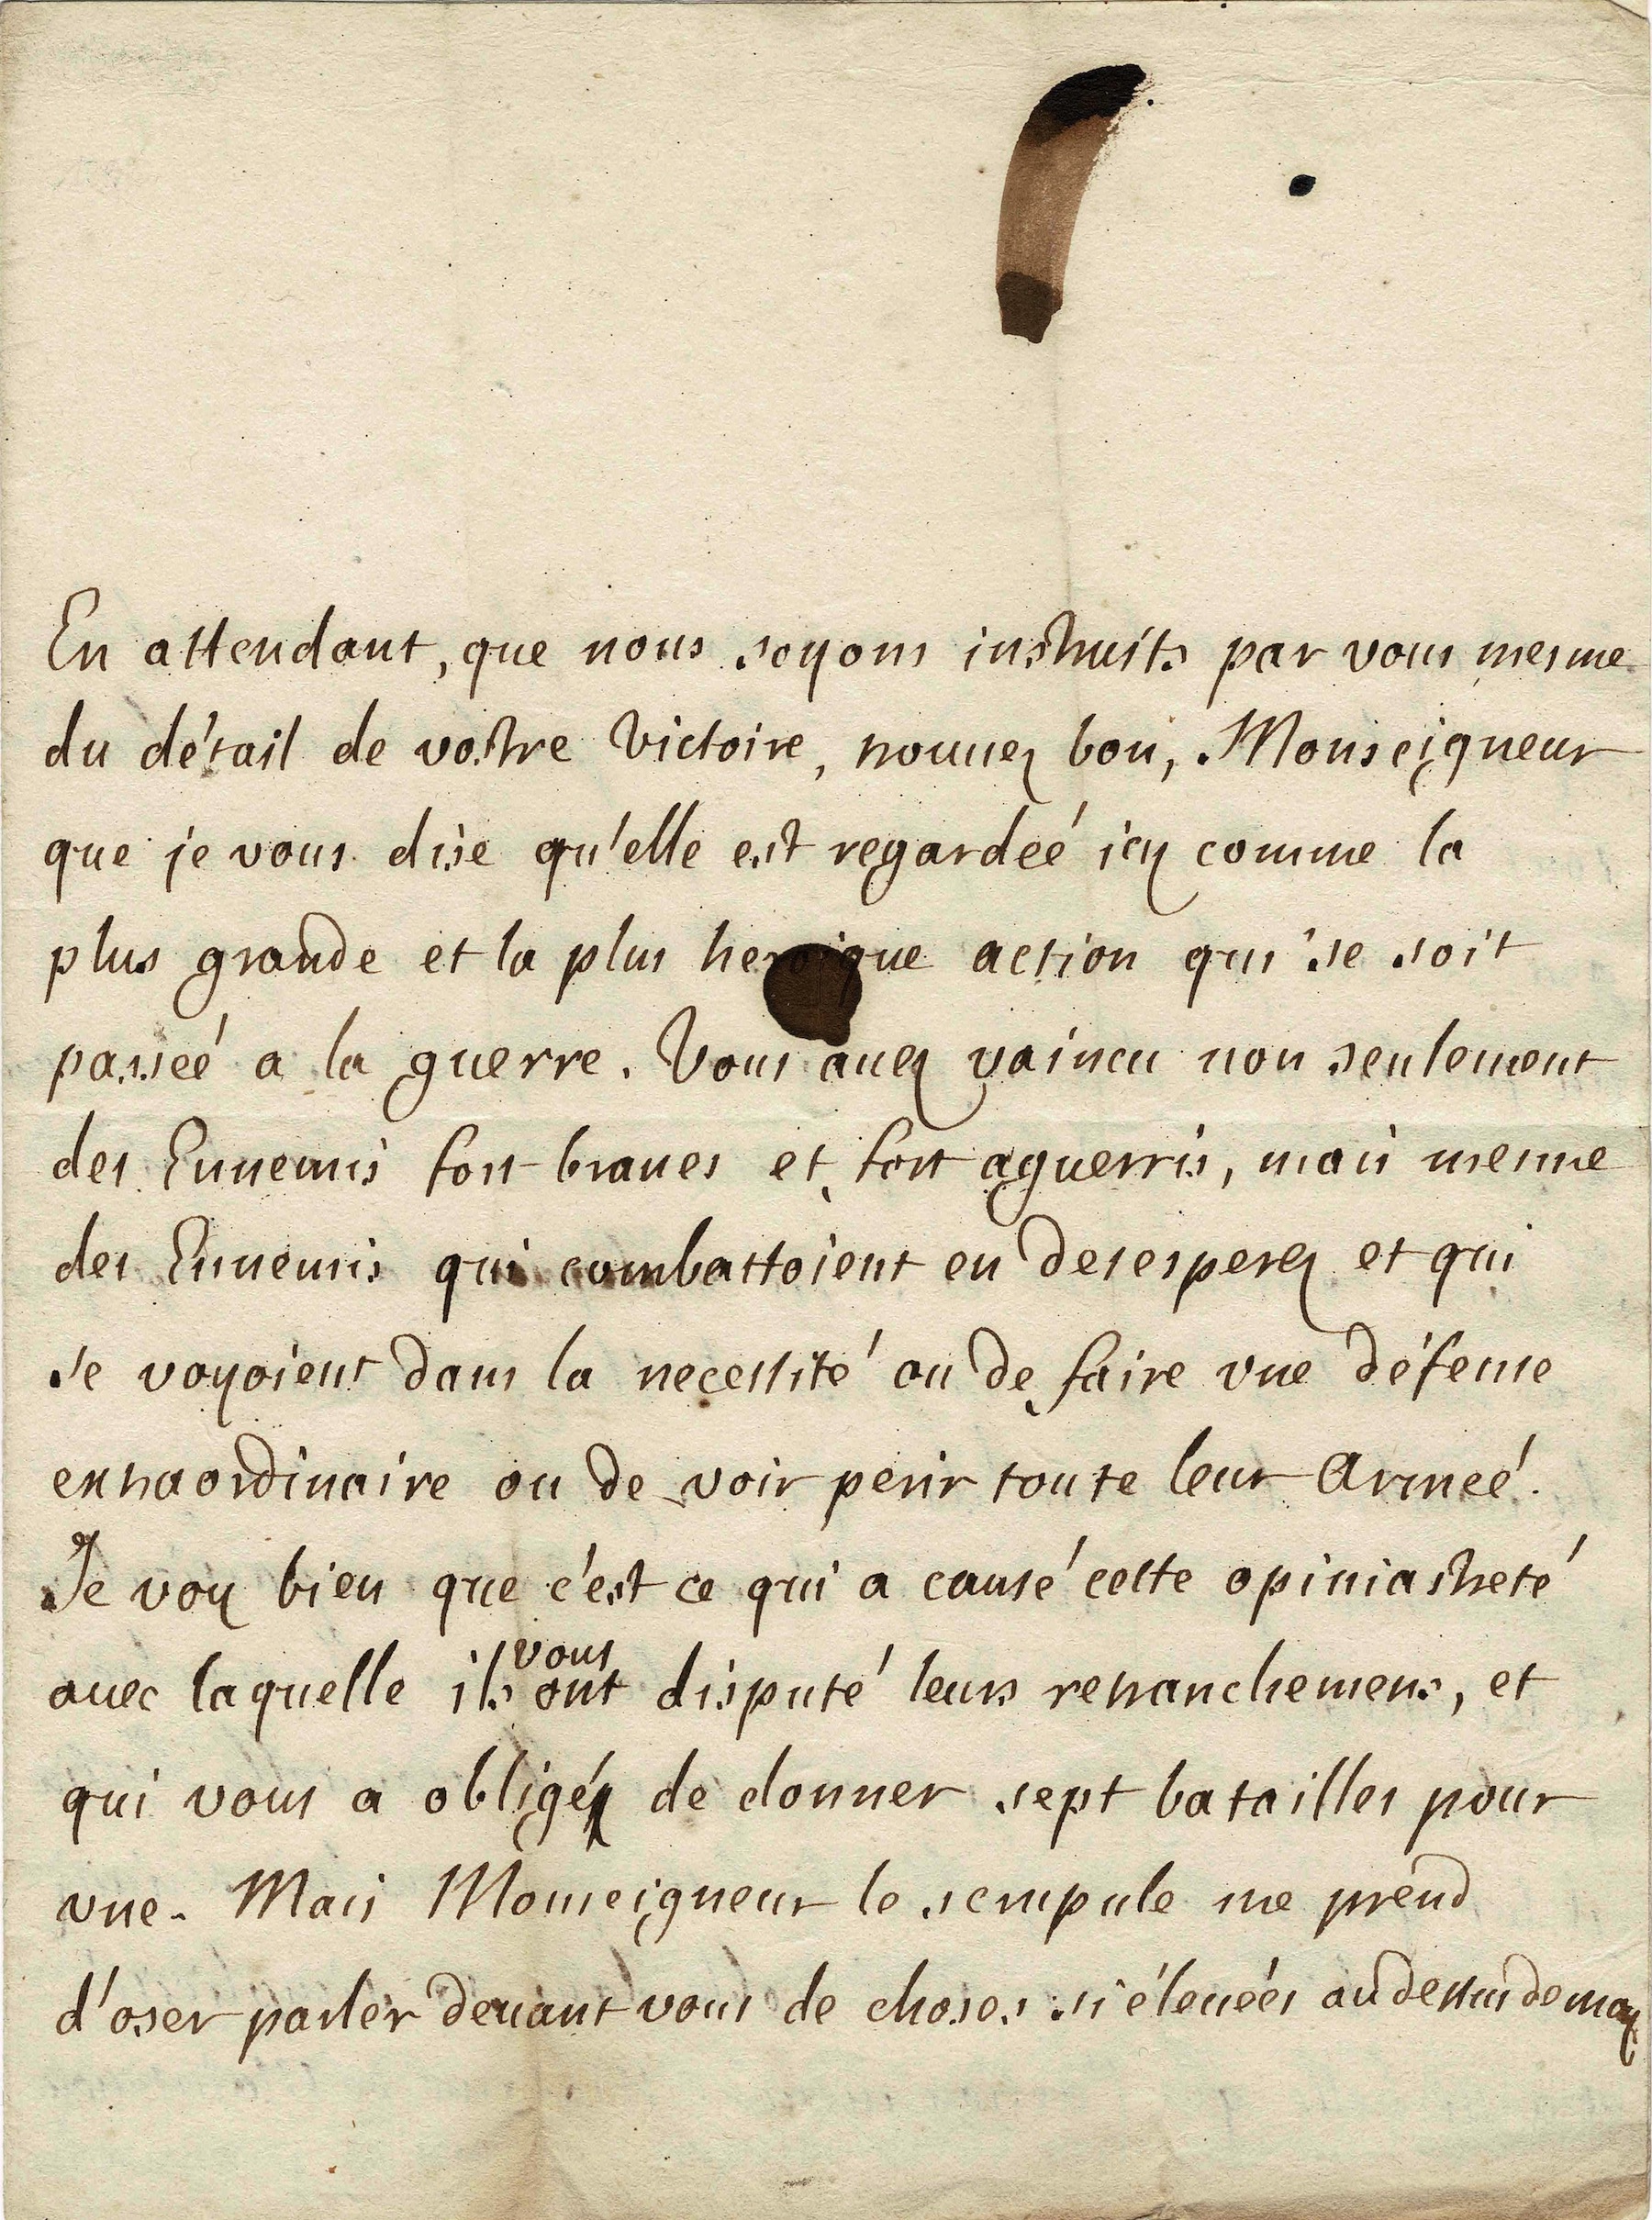 En attendant, que nous soyons instruits par vous mesme
du détail de vostre Victoire, trouuez bon, Monseigneur
que je vous dise qu'elle est regardeé icy comme la
plus grande et la plus heroique action qui se soit
passeé a la guerre. Vous auez vaincu non seulement
des Ennemis fort braues et fort aguerris, mais mesme
des Ennemis qui combattoient en desesperez et qui
se voyoient dans la necessité ou de faire vne défense
extraordinaire ou de voir perir toute leur Armeé.
Je voy bien que c'est ce qui a causé cette opiniastreté
auec laquelle ils vous ont disputé leurs retranchemens, et
qui vous a obligé de donner sept batailles pour
vne. Mais Monseigneur le scrupule me prend
d'oser parler deuant vous de choses si éleueés au dessus de moy